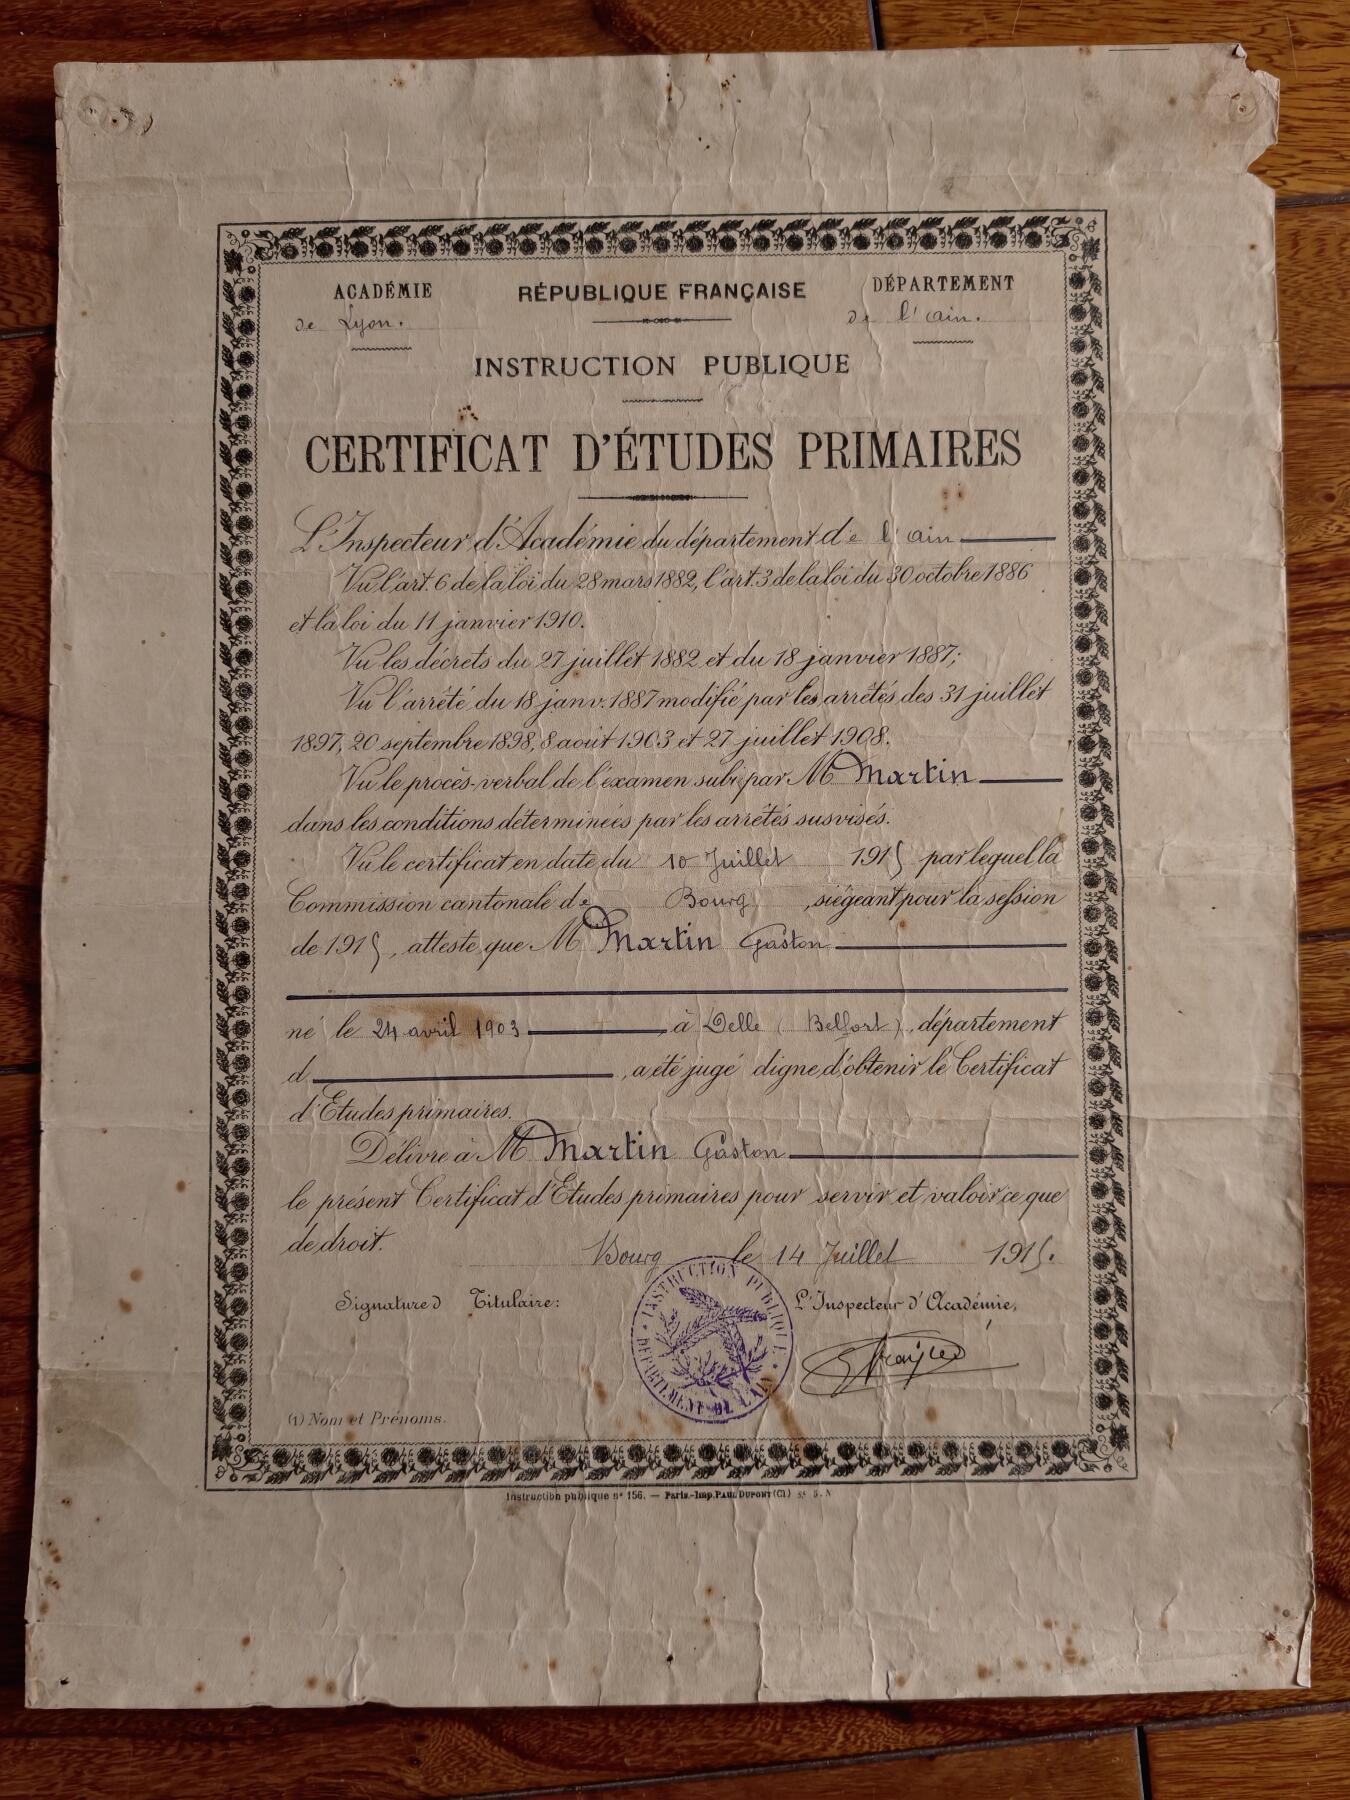 ACADÉMIE
de Lyon.
RÉPUBLIQUE FRANÇAISE
DÉPARTEMENT
de l'ain.
INSTRUCTION PUBLIQUE
CERTIFICAT D'ÉTUDES PRIMAIRES
L'Inspecteur d'Académie du département de l'ain
Vu l'art. 6 de la loi du 28 mars 1882, l'art. 3 de la loi du 30 octobre 1886
et la loi du 11 janvier 1910.
Vu les décrets du 27 juillet 1882 et du 18 janvier 1887;
Vu l'arrêté du 18 janv. 1887 modifié par les arrêtés des 31 juillet
1897, 20 septembre 1898, 8 août 1903 et 27 juillet 1908.
Vu le procès-verbal de l'examen subi par M Martin
dans les conditions déterminées par les arrêtés susvisés.
Vu le certificat en date du 10 Juillet 1915 par lequel la
Commission cantonale de Bourg, siégeant pour la session
de 1915, atteste que M Martin Gaston
né le 24 avril 1903 à Delle (Belfort), département
d , a été jugé digne d'obtenir le Certificat
d'Etudes primaires.
Délivré à M Martin Gaston
le présent Certificat d'Etudes primaires pour servir et valoir ce que
de droit.
Bourg le 14 Juillet 1915.
Signature d Titulaire:
L'Inspecteur d'Académie,
INSTRUCTION PUBLIQUE
DÉPARTEMENT DE L'AIN
(1) Nom et Prénoms.
Instruction publique nº 156. — Paris.-Imp. PAUL DUPONT (Cl.)